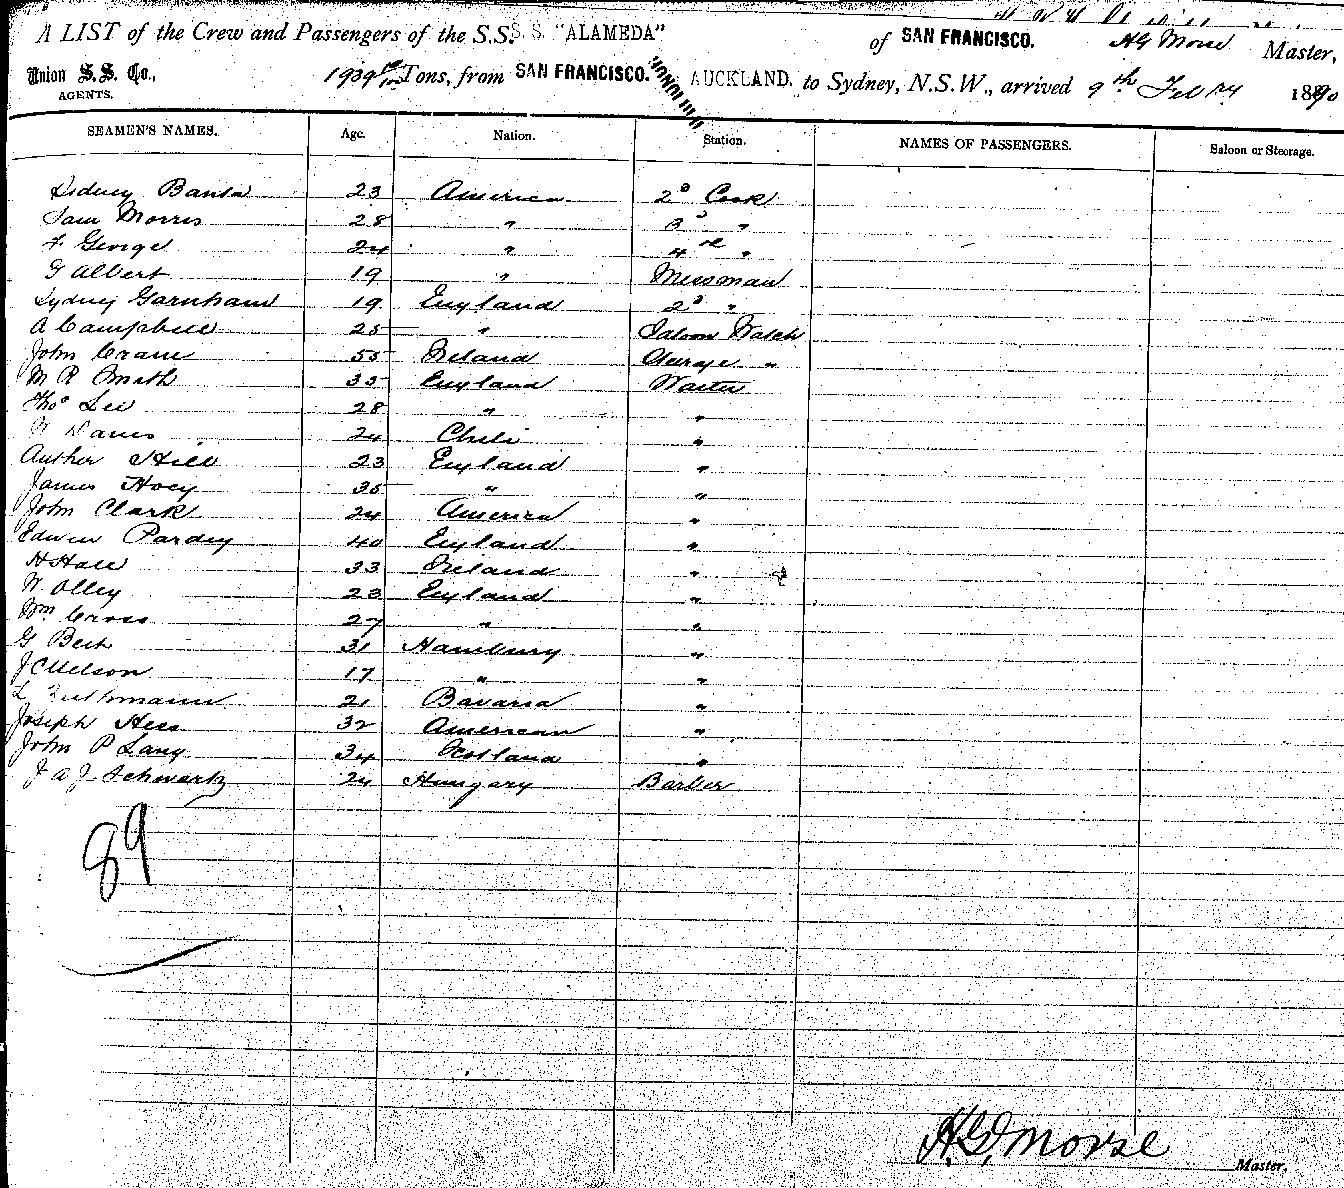 A LIST of the Crew and Passengers of the S.S. S.S. "ALAMEDA" of SAN FRANCISCO. HG Morse Master,
Union S.S. Co., 1939 Tons, from SAN FRANCISCO. AUCKLAND. to Sydney, N.S.W., arrived 9th Feb 1890
AGENTS.
SEAMEN'S NAMES. Age. Nation. Station. NAMES OF PASSENGERS. Saloon or Steerage.
Sidney Banta 23 America 2d Cook
Sam Morris 28 " 3d "
F George 24 " 4th "
G Albert 19 " Messman
Sydney Garnham 19 England 2d "
A Campbell 25 " Saloon Watch
John Crane 55 Ireland Steerage "
M R Smith 35 England Waiter
Thos Lee 28 " "
Davis 24 Chili "
Auther Hill 23 England "
James Hoey 35 " "
John Clark 24 America "
Edwin Pardey 40 England "
H Hall 33 Ireland "
W. Olley 23 England "
Wm Cross 27 " "
G Bech 31 Hamburg "
J C Nelson 17 " "
L 21 Bavaria "
Joseph Hess 32 American "
John P Lang 34 Scotland "
J A J Schwartz 24 Hungary Barber
89
H.G. Morse
Master.